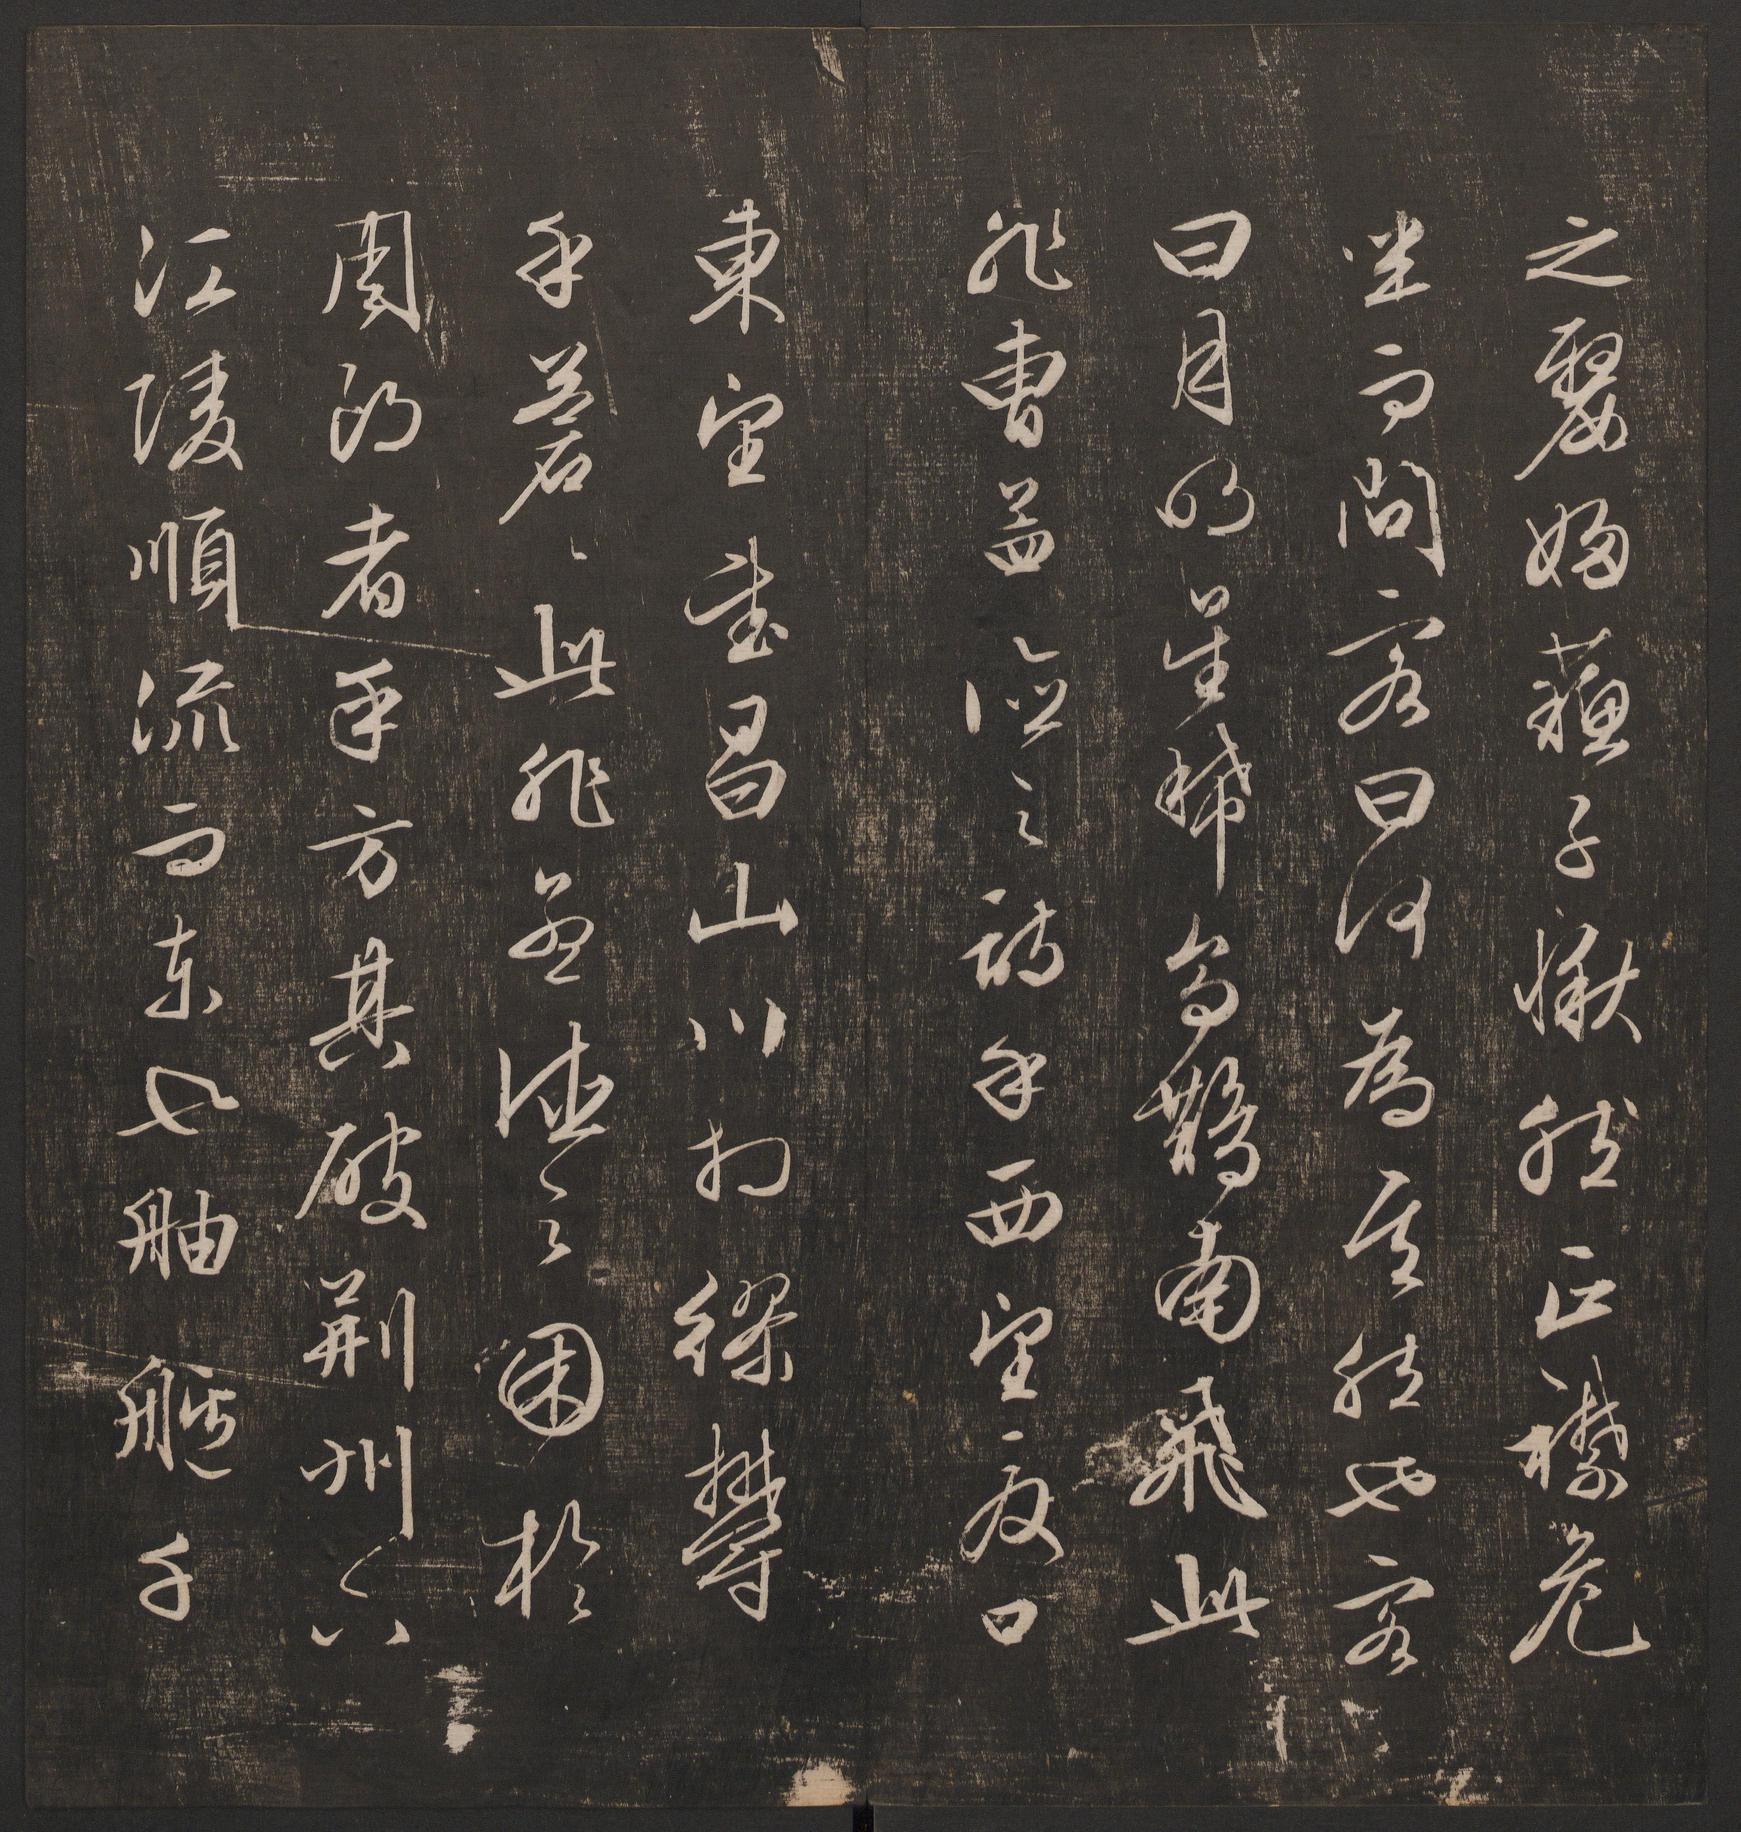 之嫠婦蘇子愀然正襟危
坐而問客曰何為其然也客
曰月明星稀烏鵲南飛此
非曹孟德之詩乎西望夏口
東望武昌山川相繆欝
乎蒼〻此非孟德之困於
周郎者乎方其破荊州下
江陵順流而東也舳艫千